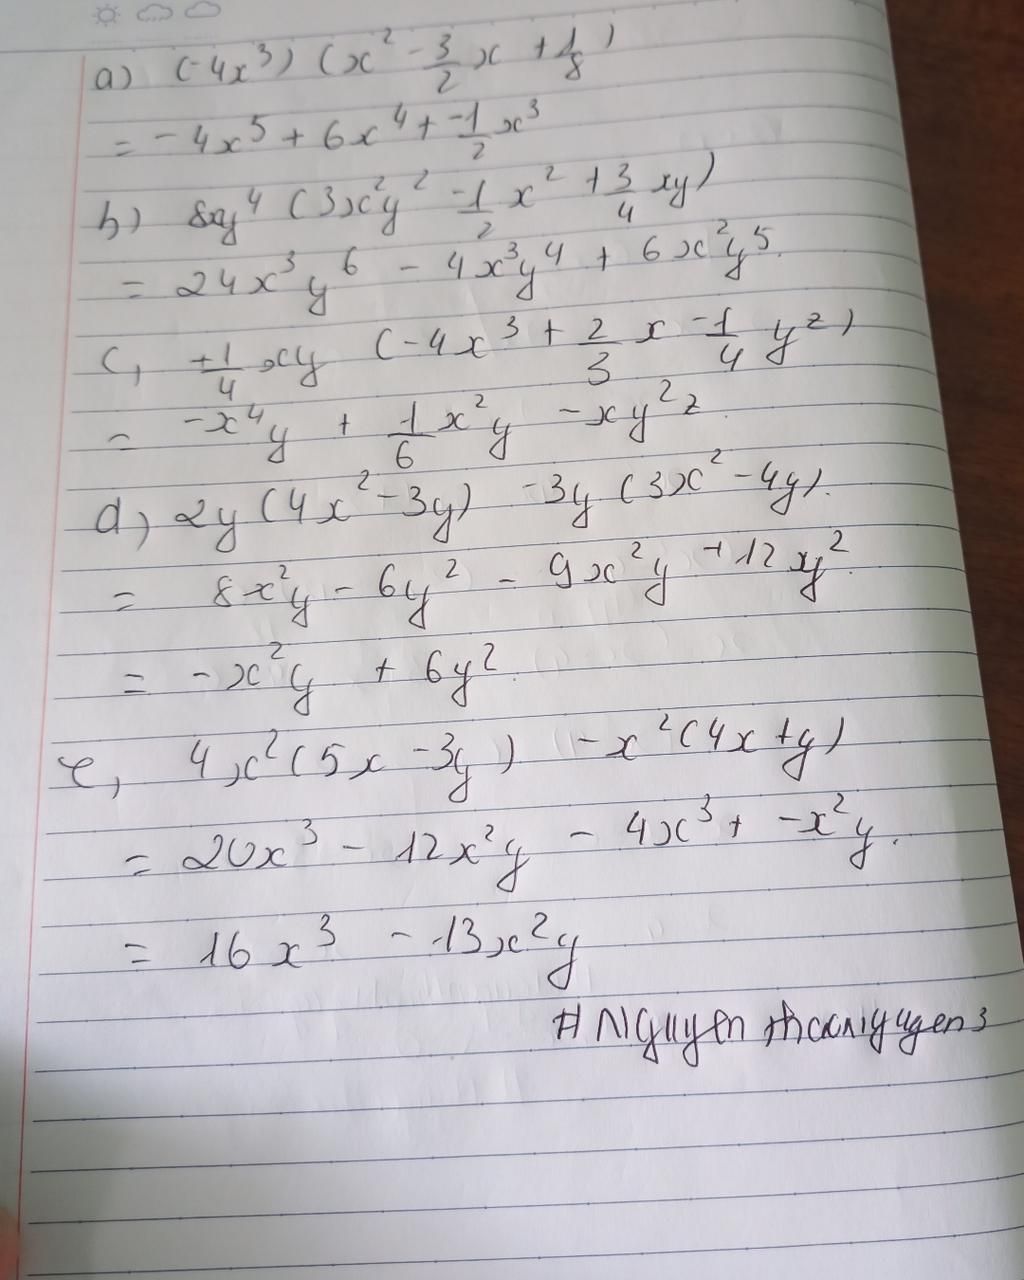 a) (-4x³) (x² - 3/2 x + 1/8)
= -4x⁵ + 6x⁴ + -1/2 x³
b) 8xy⁴ (3x²y² - 1/2 x² + 3/4 xy)
= 24x³y⁶ - 4x³y⁴ + 6x²y⁵.
c, +1/4 xy (-4x³ + 2/3 x - 1/4 yz)
= -x⁴y + 1/6 x²y - xy²z.
d, 2y (4x² - 3y) - 3y (3x² - 4y).
= 8x²y - 6y² - 9x²y + 12xy².
= -x²y + 6y².
e, 4x² (5x - 3y) - x² (4x + y)
= 20x³ - 12x²y - 4x³ + -x²y.
= 16x³ - 13x²y
# Nguyen